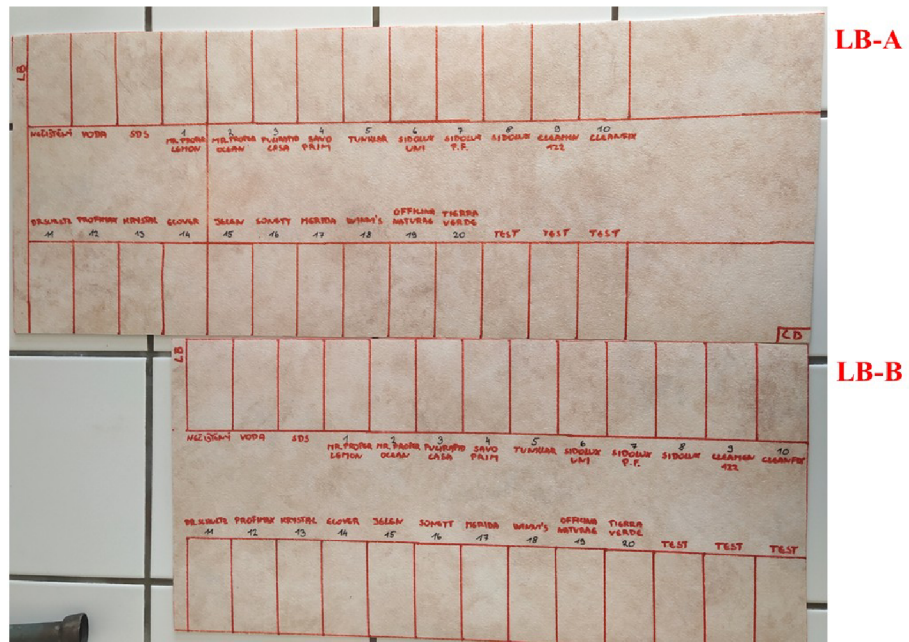 LB-A
LB
NEČIŠTĚNÝ VODA SDS 1 MR. PROPER LEMON 2 MR. PROPER OCEAN 3 CASA 4 SAVO PRIM 5 6 SIDOLUX UNI 7 SIDOLUX P.F. 8 SIDOLUX 9 CLEAMEN 122 10 CLEANFIX
11 PROFIMAX 12 KRYSTAL 13 14 JELEN 15 SONETT 16 MERIDA 17 WINNI'S 18 OFFICINA NATURAE 19 TIERRA VERDE 20 TEST TEST TEST
LB
LB-B
LB
NEČIŠTĚNÝ VODA SDS 1 MR. PROPER LEMON 2 MR. PROPER OCEAN 3 CASA 4 SAVO PRIM 5 6 SIDOLUX UNI 7 SIDOLUX P.F. 8 SIDOLUX 9 CLEAMEN 122 10 CLEANFIX
11 PROFIMAX 12 KRYSTAL 13 14 JELEN 15 SONETT 16 MERIDA 17 WINNI'S 18 OFFICINA NATURAE 19 TIERRA VERDE 20 TEST TEST TEST